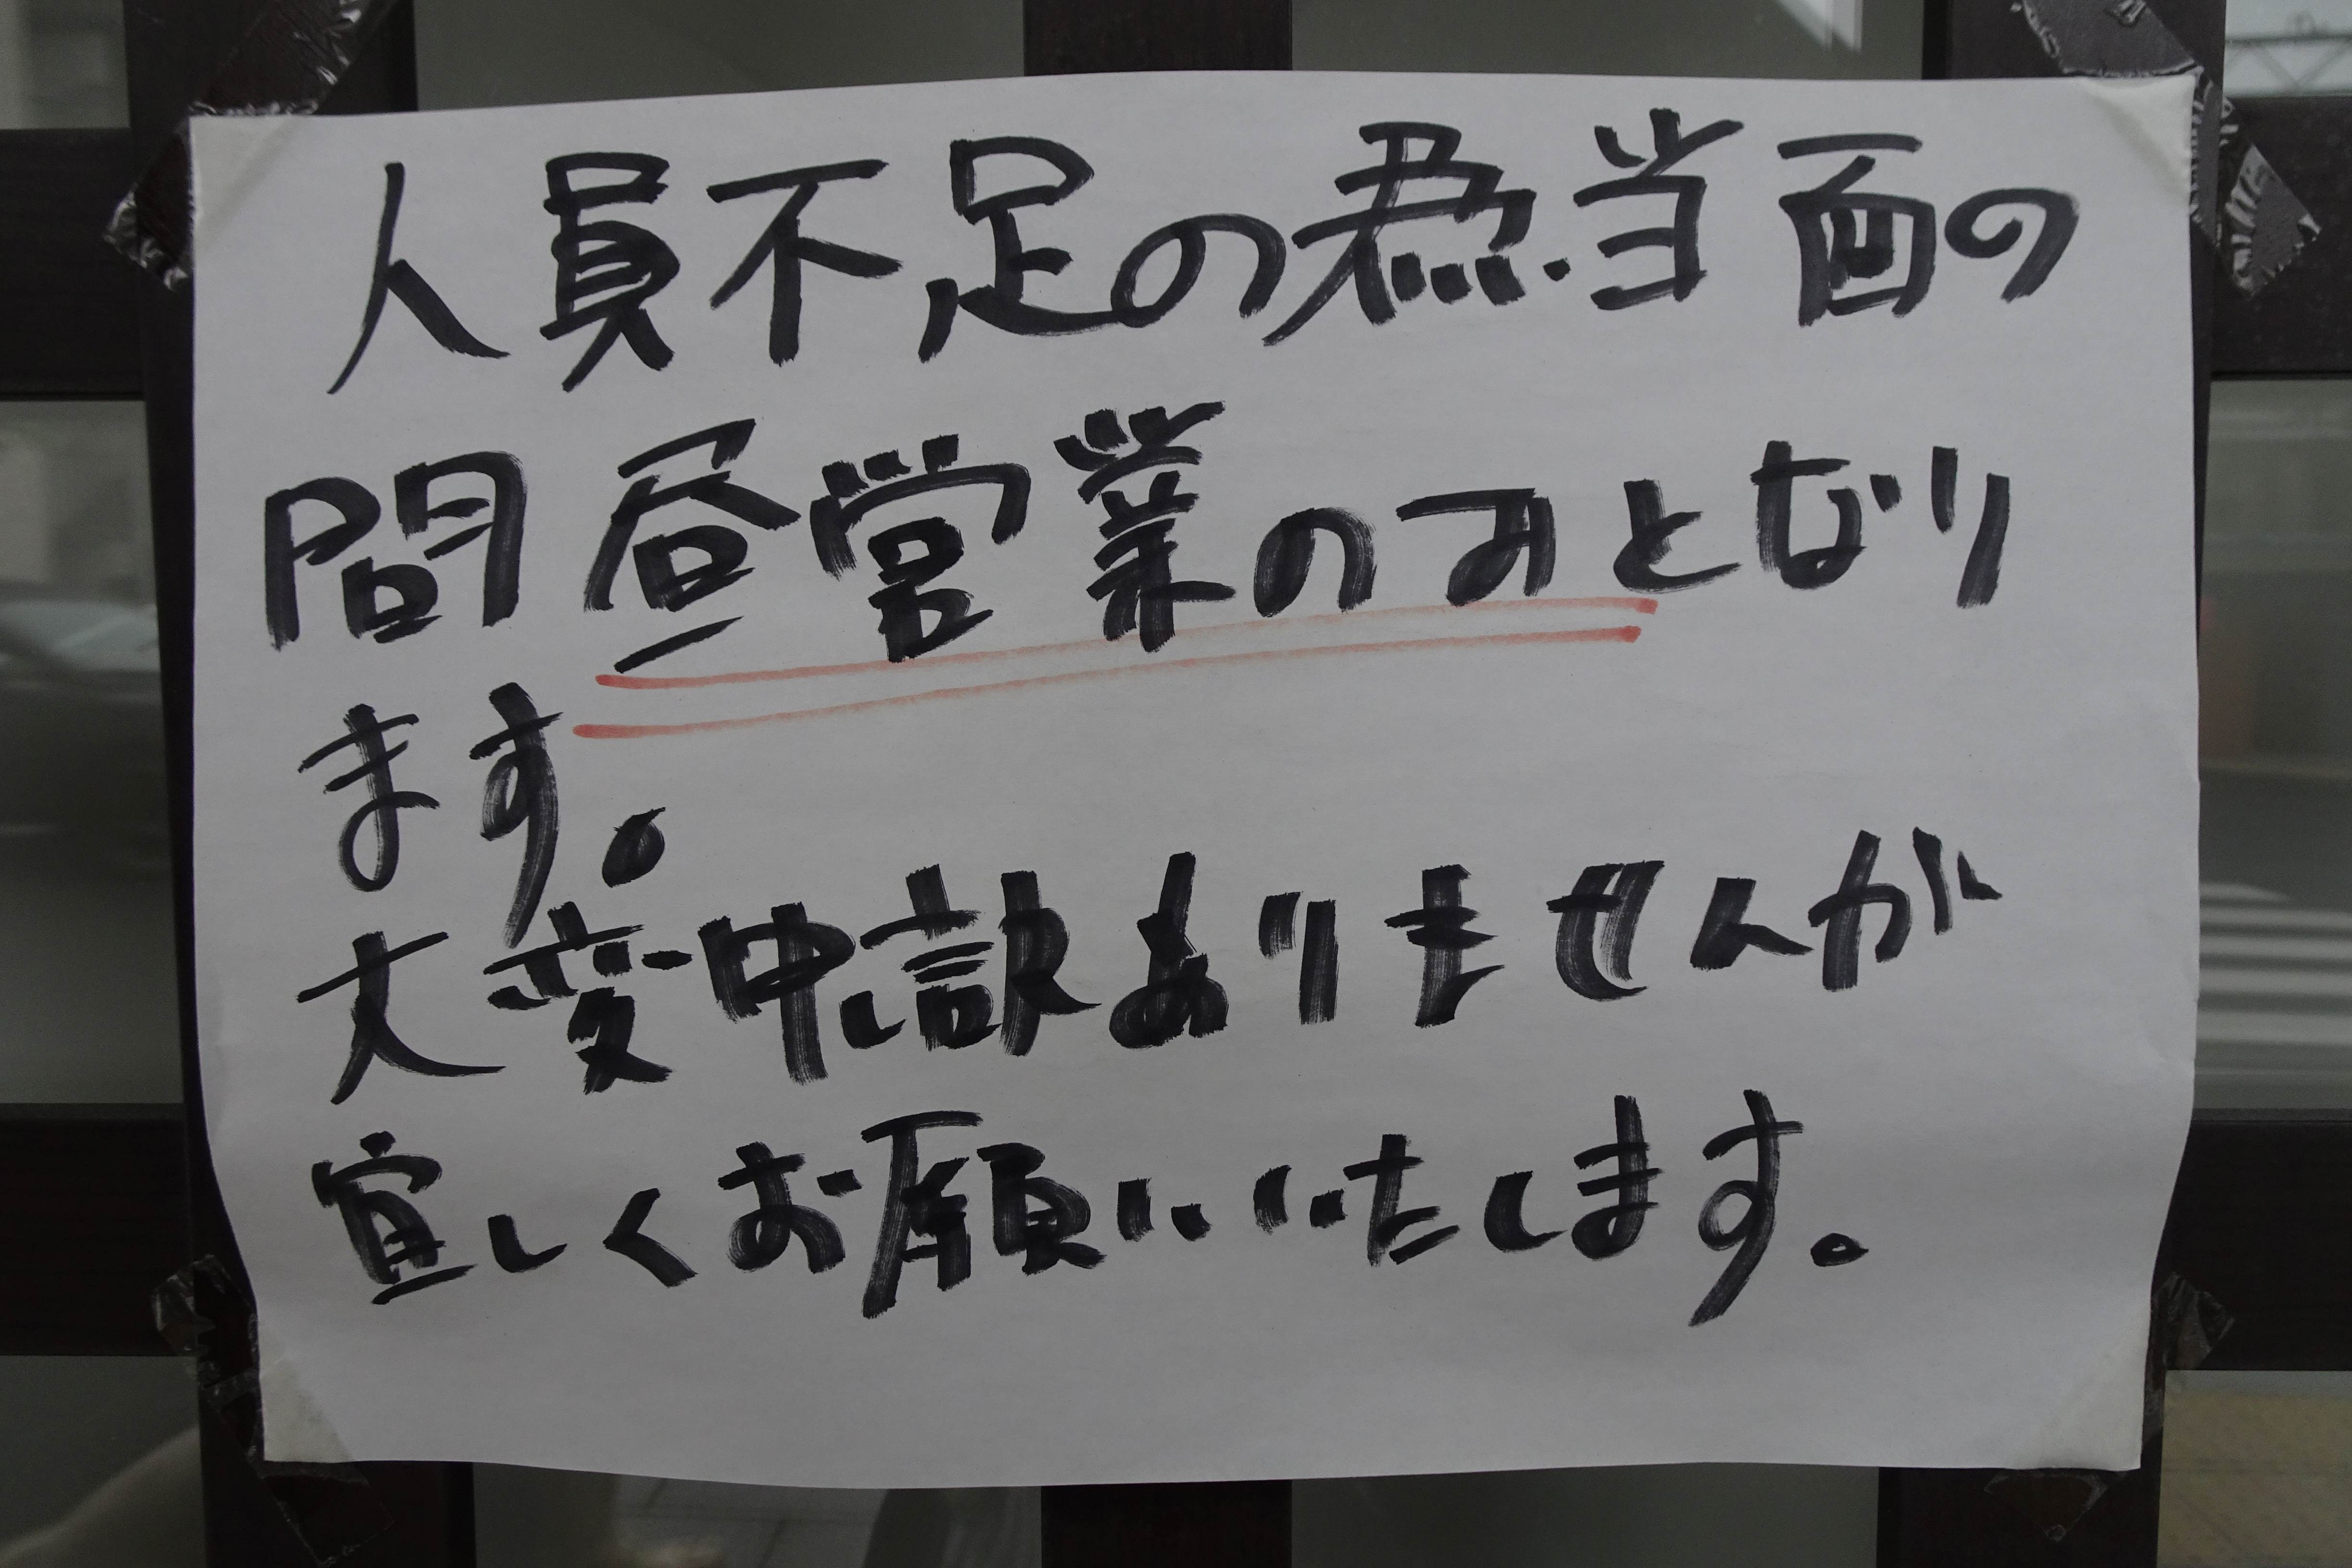 人員不足の為.当面の
間昼営業のみとなり
ます。
大変申し訳ありませんが
宜しくお願いいたします。